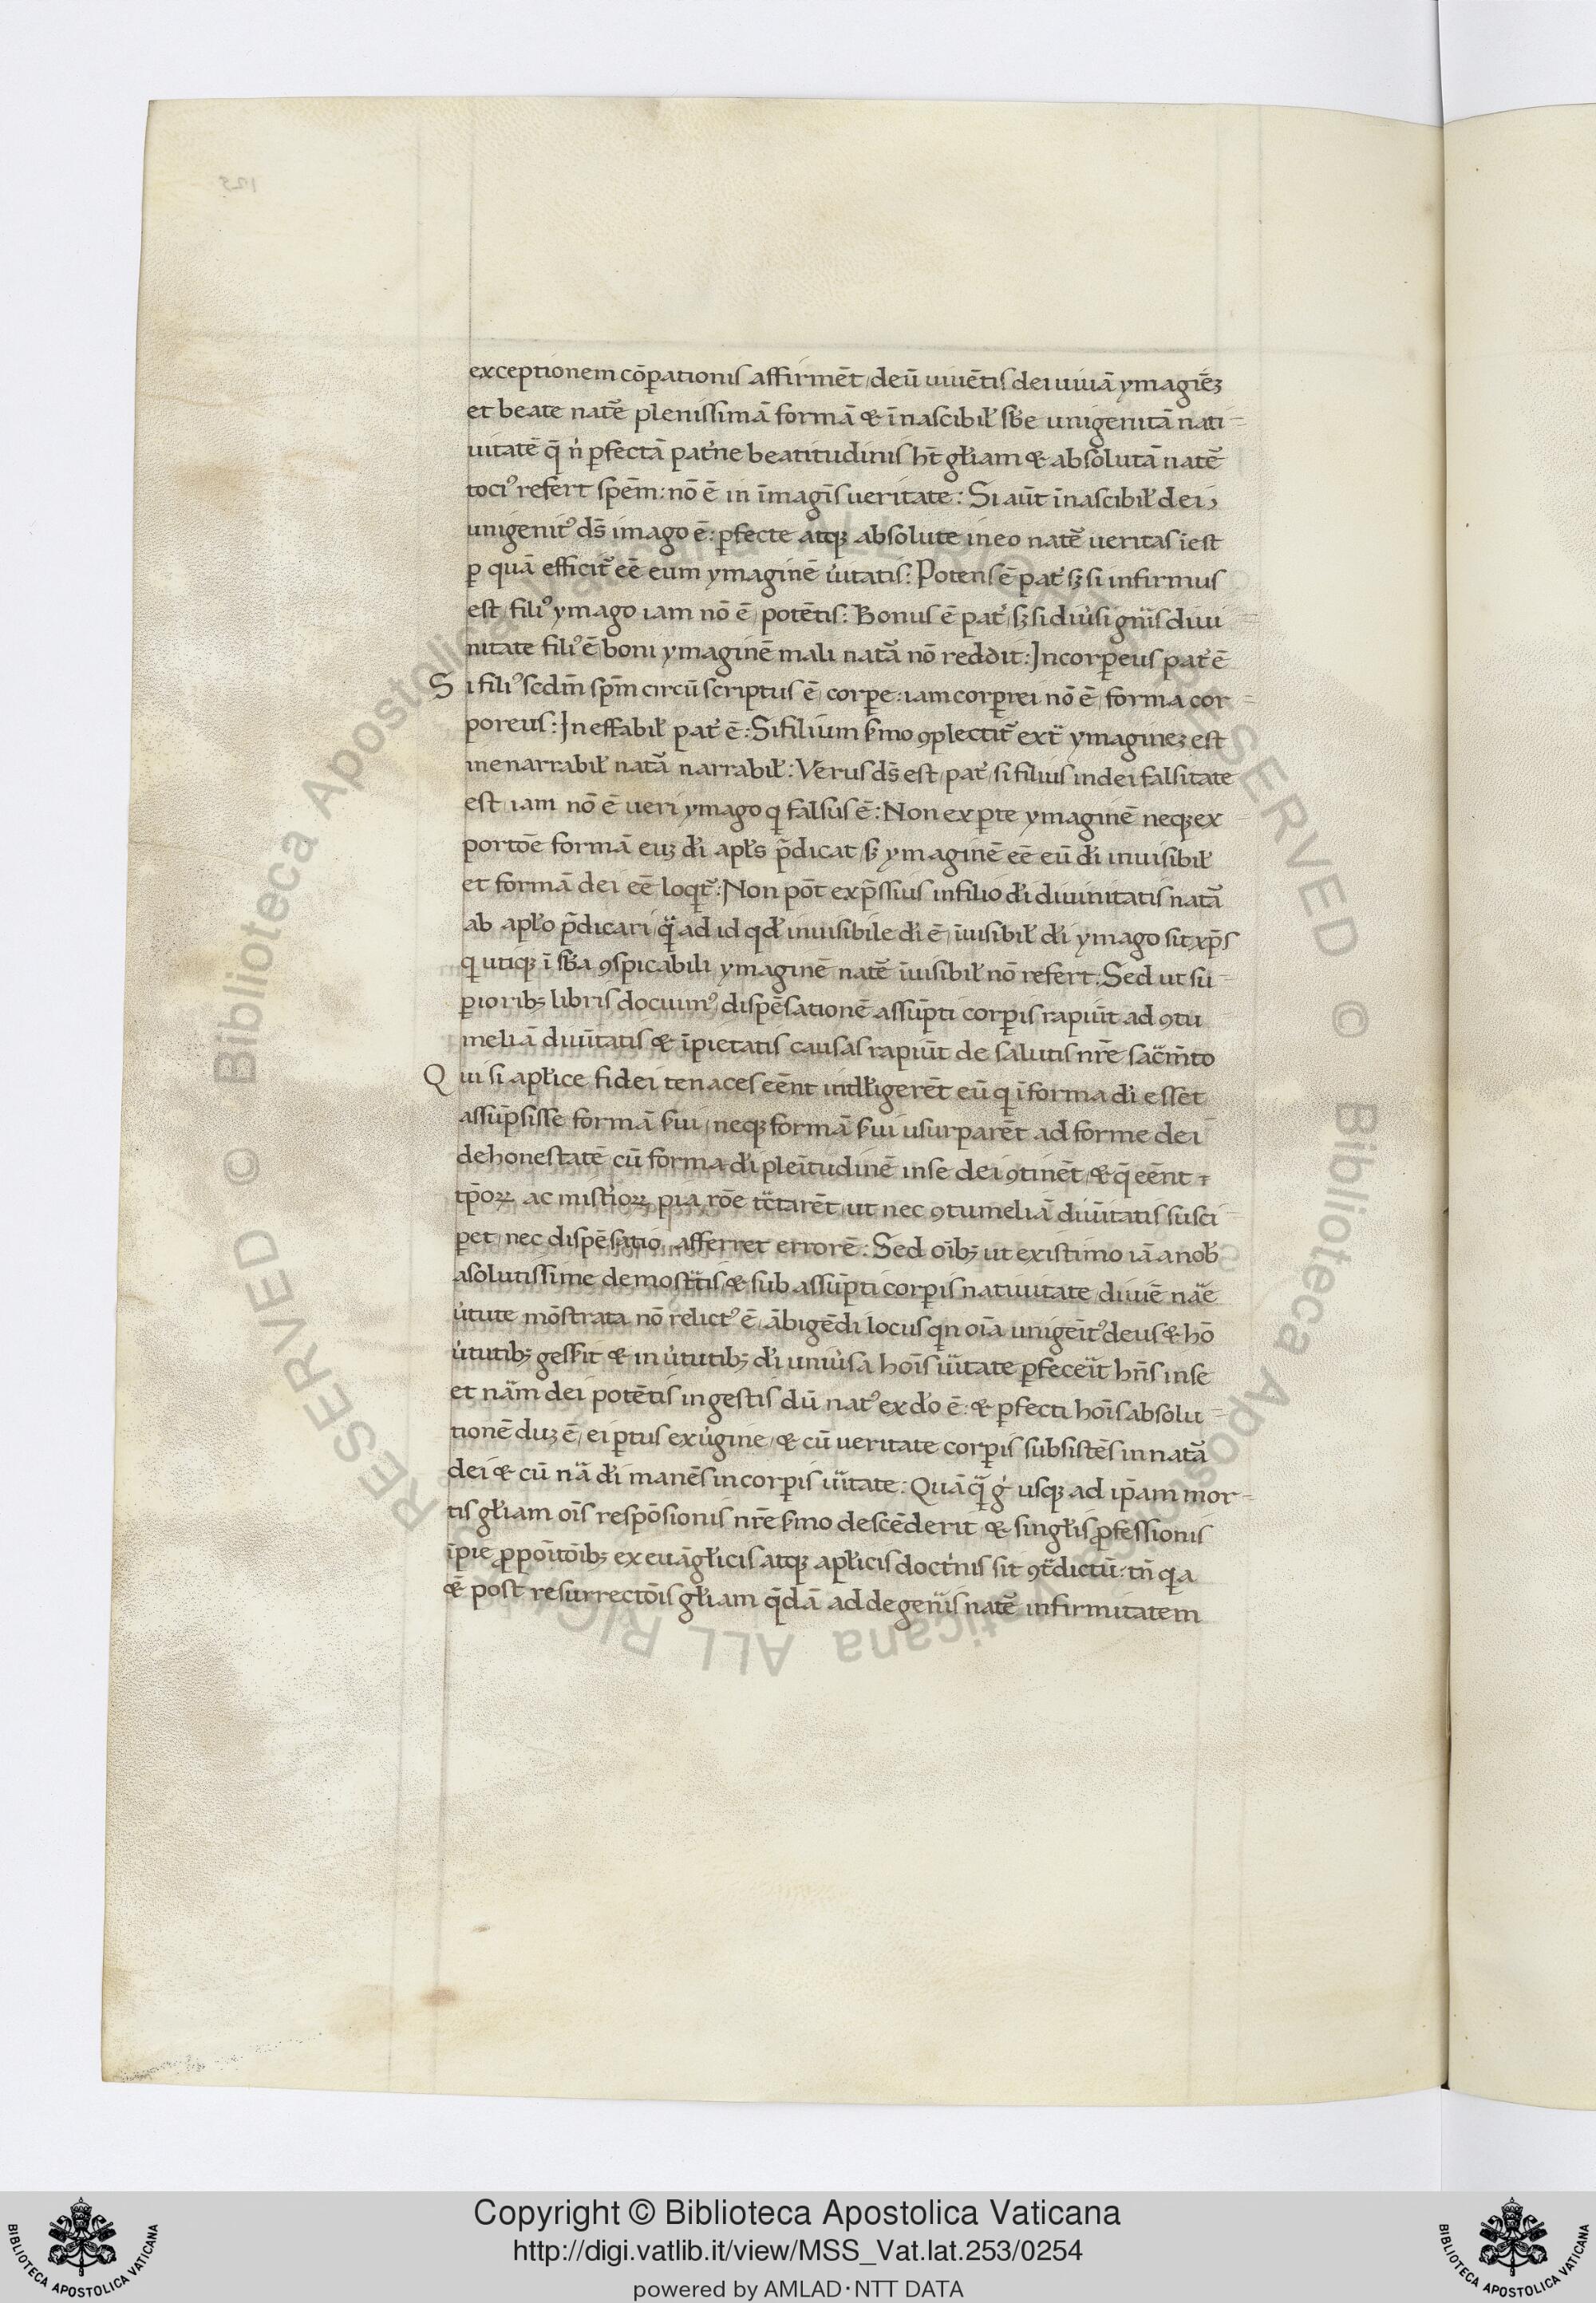 exceptionem cōꝑationis affirmēt deū uiuētis dei uiuā ymaginēꝫ
et beate nat̄e plenissimā formā & īnascibiłˢ sb̄e unigenitā nati-
uitatē q̄ n̓ ꝑfectā patⁱne beatitudinis hāt głiam & absolutā nat̄e
tociꝰ refert spēm: nō ē in īmagīs ueritate: Si aūt īnascibił dei
unigenitꝰ dˢ̄ imago ē: ꝑfecte atqꝫ absolute in eo nat̄e ueritas īest
ꝑ quā efficit̄ ēē eum ymaginē u̓itatis: Potens ē pat̓ sꝫ si infirmus
est filiꝰ ymago iam nō ē potētis: Bonus ē pat̓ sꝫ si diu̓si gn̄is diui-
nitate filiꝰ ē boni ymaginē mali nat̄a nō reddit: Incorꝑeus pat̓ ē
Si filiꝰ scdm̄ sp̄m circū scriptus ē corꝑe: iam corꝑrei nō ē forma cor-
poreus: Ineffabił pat̓ ē: Si filium s̓mo ꝯplectit̄ ext̄ ymaginēꝫ est
inenarrabił nat̄a narrabił: Verus dˢ̄ est pat̓ si filius in dei falsitate
est iam nō ē ueri ymago qⁱ falsus ē: Non ex ꝑte ymaginē neqꝫ ex
portōe formā euꝫ d̓i apłs p̄dicat sꝫ ymaginē ēē eū d̓i inuisibił
et formā dei ēē loqⁱt̄: Non pōt exp̄ssius in filio d̓i diuinitatis nat̄a
ab apło p̄dicari qͣ̄ ad id qd̓ inuisibile d̓i ē īuisibił d̓i ymago sit xp̄s
qⁱ utiqꝫ ī sb̄a ꝯspicabili ymaginē nat̄e īuisibił nō refert: Sed ut su-
ꝑioribꝫ libris docuimꝰ dispēsationē assūpti corꝑis rapiūt ad ꝯtu
meliā diuītatis & īpietatis causas rapiūt de salutis nr̄e sac̄m̄to
Qui si apłice fidei tenaces eēnt intłligerēt eū qⁱ ī forma d̓i esset
assūpsisse formā s̓ui neqꝫ formā s̓ui usurparēt ad forme dei
dehonestatē cū forma d̓i pleītudinē in se dei ꝯtinēt & q̄ eēnt ⁊
tp̄oꝝ ac mist̓ioꝝ pia rōe tc̄tarēt ut nec ꝯtumeliā diuītatis susci-
ꝑet nec dispēsatio afferret errorē: Sed oībꝫ ut existimo iā a nob̓
asolutissime demost̄tis & sub assūpti corꝑis natiuitate diuīe nāe
u̓tute mōstrata nō relictꝰ ē ābigēdi locus qⁱn oīa unigeītꝰ deus & hō
u̓tutibꝫ gess̓it & in u̓tutibꝫ d̓i uniu̓sa hoīs uītate ꝑfeceīt hn̄s in se
et nām dei potētis in gestis dū natꝰ ex d̓o ē: & ꝑfecti hoīs absolu-
tionē duꝫ ē ei ꝑtus ex u̓gine & cū ueritate corꝑis subsistēs in nat̄a
dei & cū nā d̓i manēs in corꝑis uītate: Quāqͣ̄ g̓ usqꝫ ad ip̄am mor-
tis głiam oīs respōsionis nr̄e s̓mo descēderit & singłis ꝓfessionis
īpie ꝓpoītōibꝫ ex euāgłicis atqꝫ apłicis doctⁱnis sit ꝯt̄dictū: tn̄ qⁱa
& post resurrectōis głiam q̄dā ad degen̄is nat̄e infirmitatem
Copyright © Biblioteca Apostolica Vaticana
http://digi.vatlib.it/view/MSS_Vat.lat.253/0254
powered by AMLAD·NTT DATA